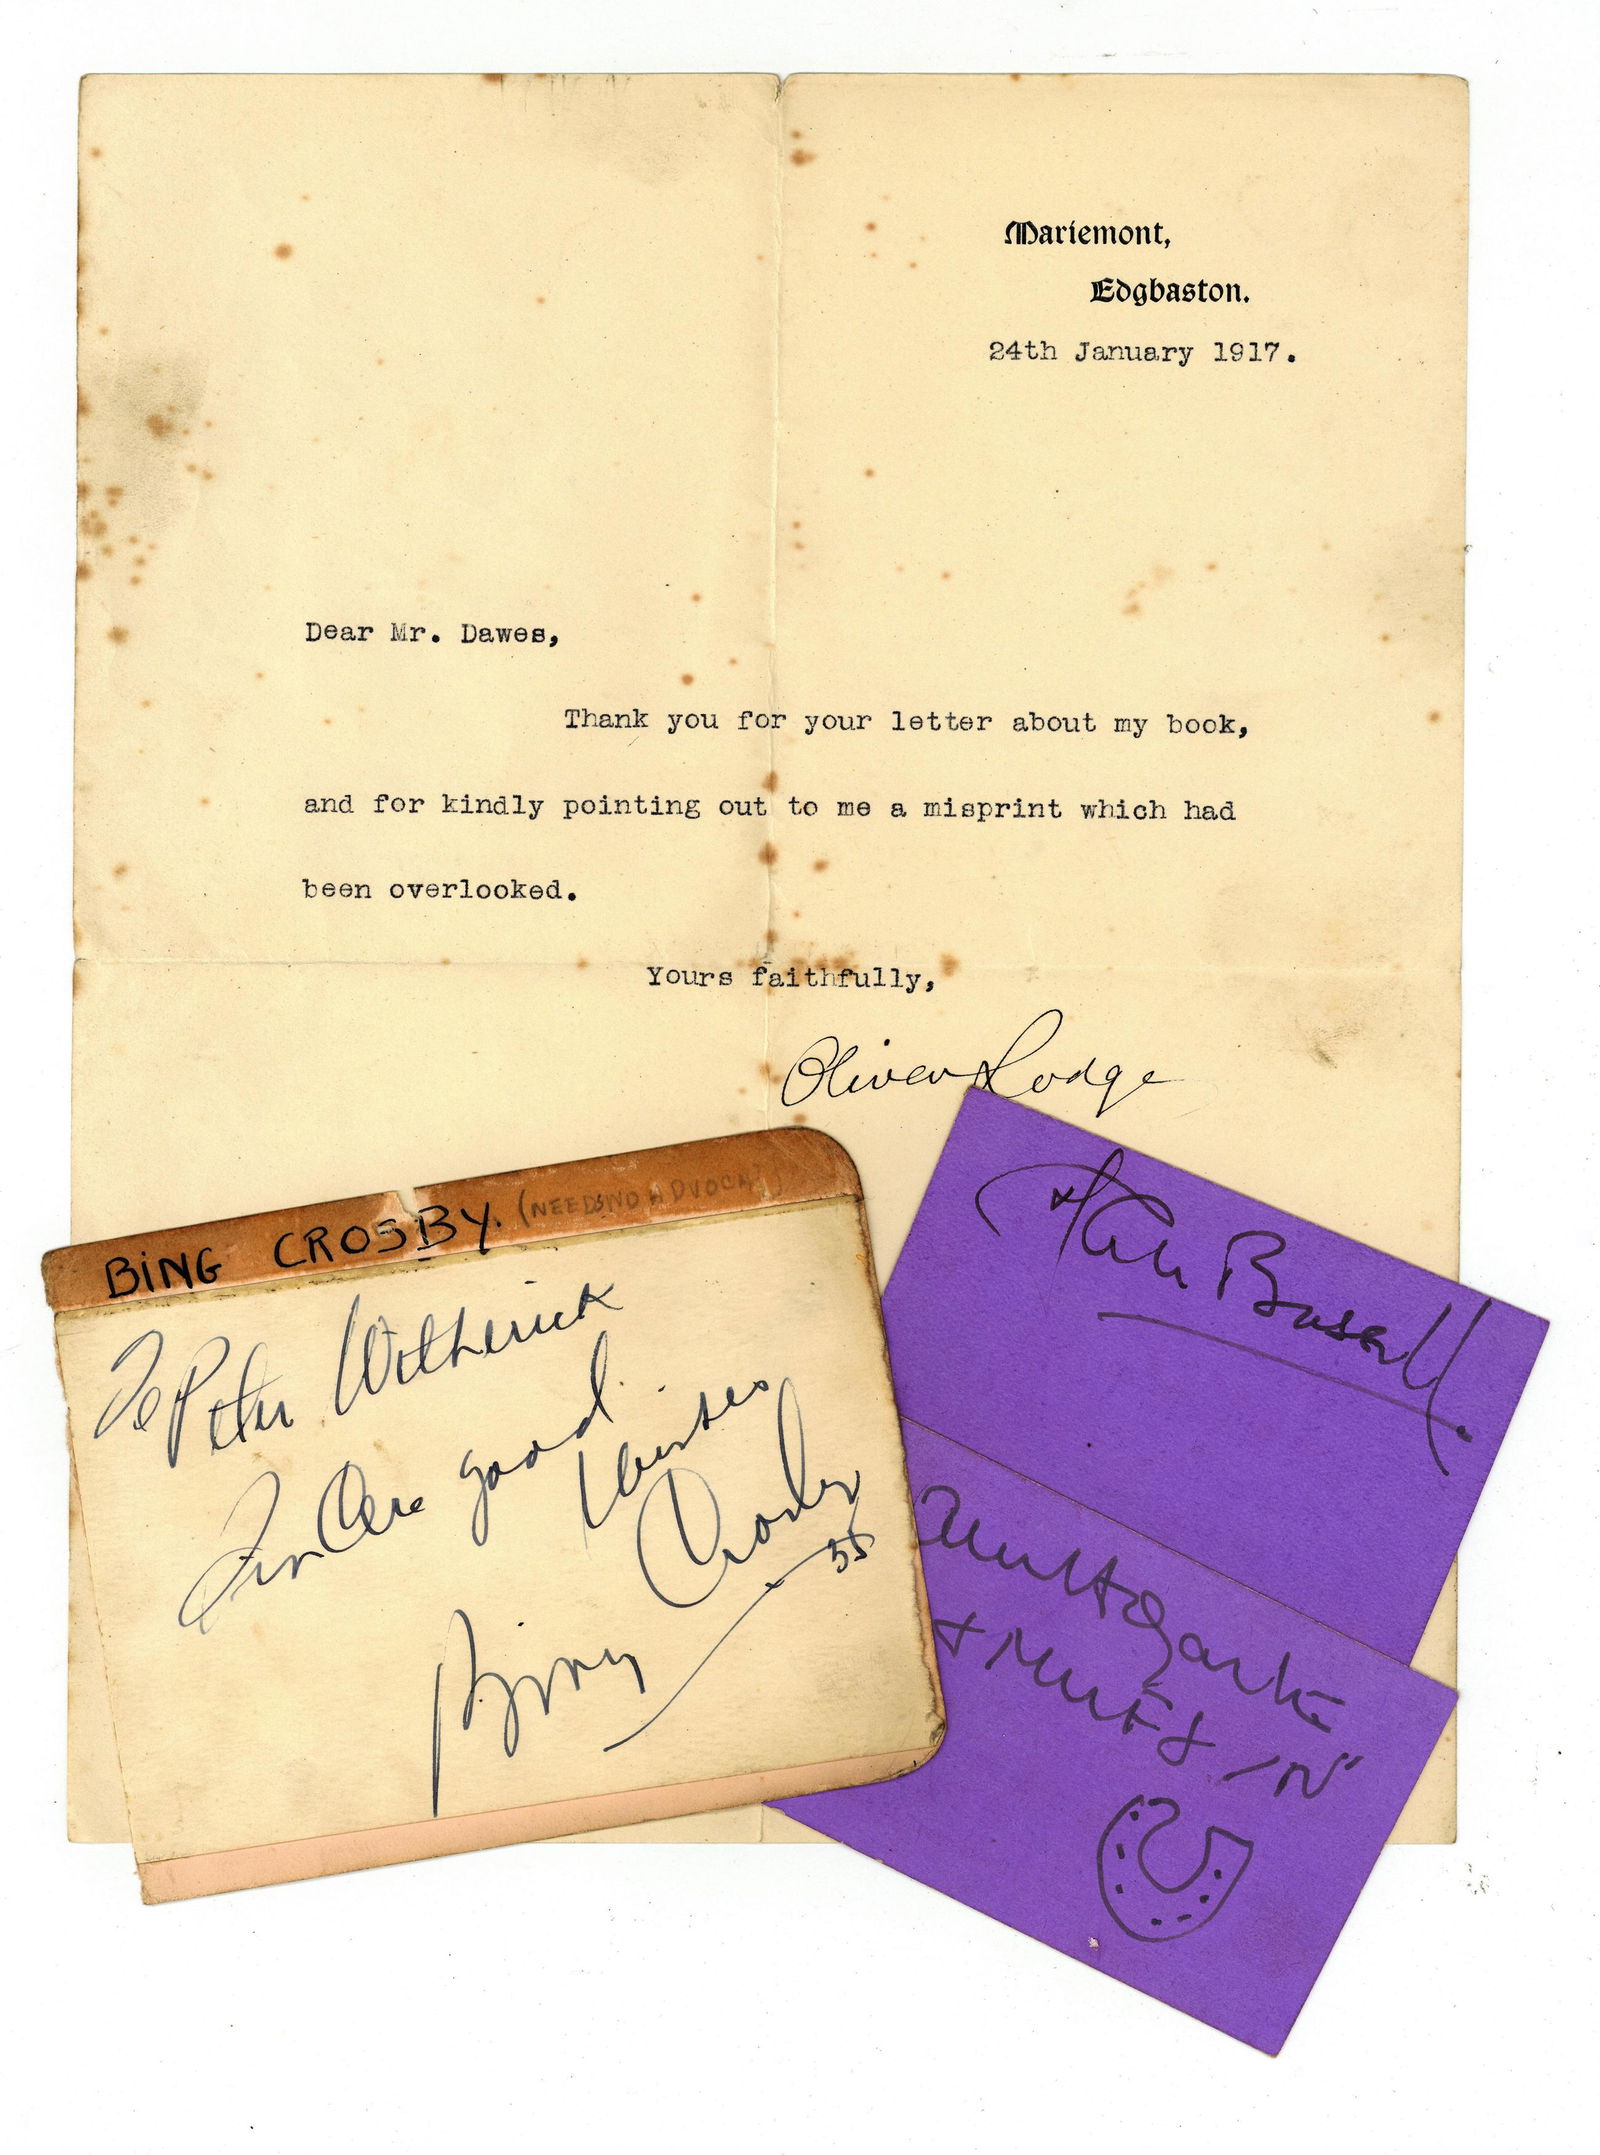 Mariemont,
Edgbaston.
24th January 1917.
Dear Mr. Dawes,
Thank you for your letter about my book,
and for kindly pointing out to me a misprint which had
been overlooked.
Yours faithfully,
Oliver Lodge
BiNG CROSBY. (NEEDS NO ADVOCA
To Peter Witherick
Sincere good
Wishes
Bing Crosby
55